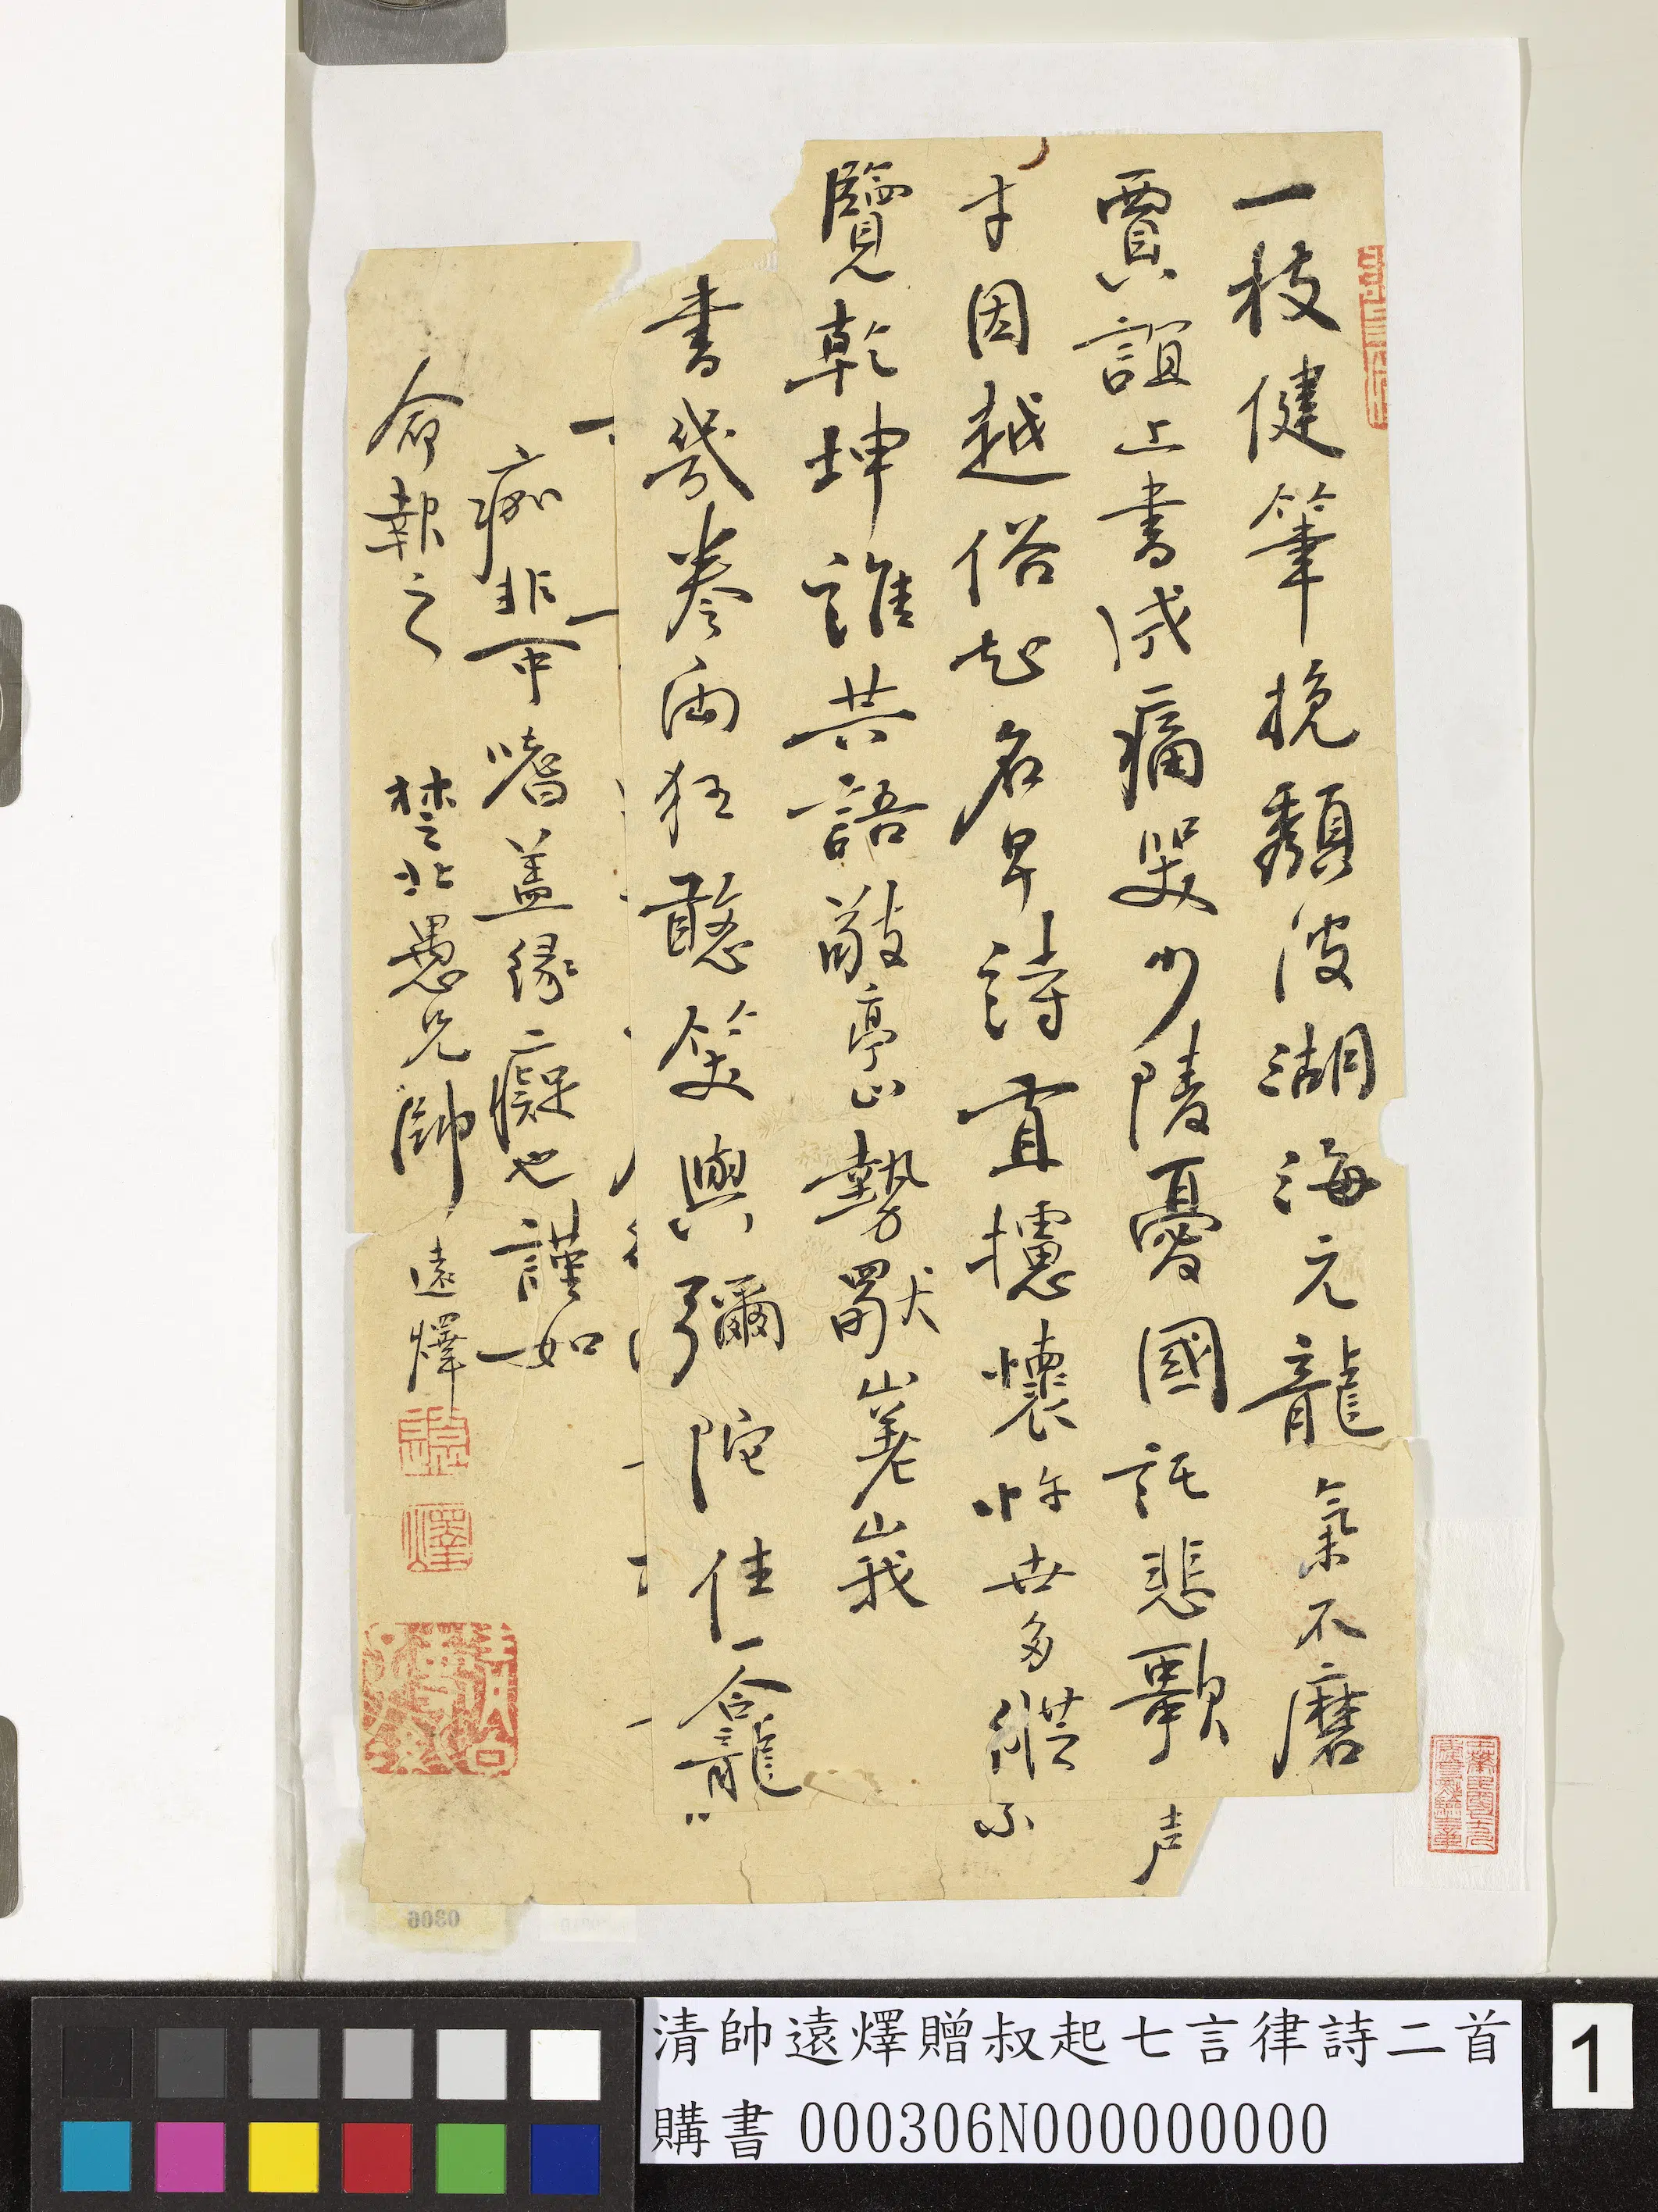 一枝健筆挽頽波湖海元龍氣不磨
賈誼上書成痛哭少陵憂國託悲歌声
才因越俗起名早詩直攄懷忤世多縱
覽乾坤誰共語敬亭山勢獨嵯峨
書幾卷両狂憨笑與彌陀住一龕〻
痂非嗜蓋緣癡也謹如
命報之 楚北愚兄帥遠燡
燡
0306
清帥遠燡贈叔起七言律詩二首
購書 000306N000000000
1